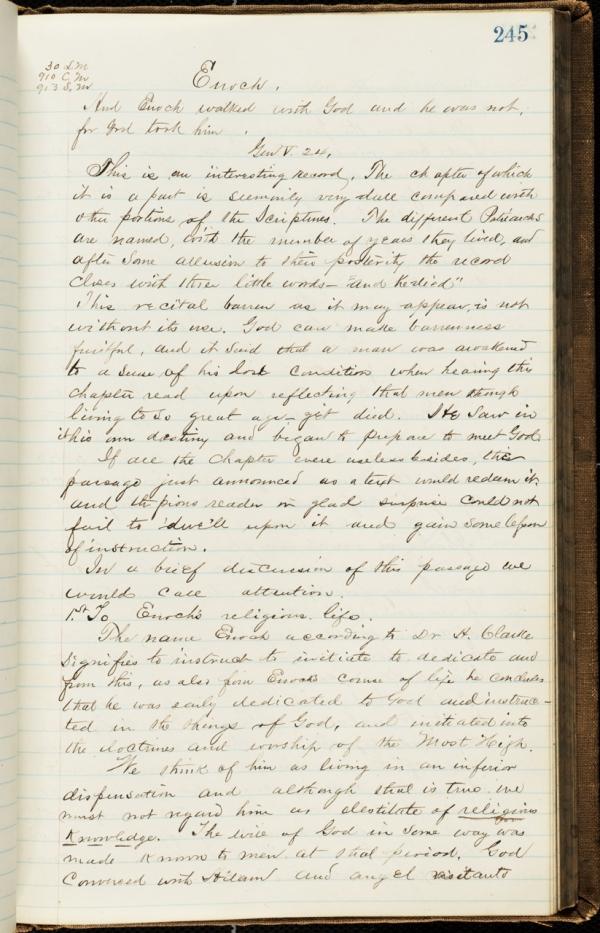 245
30 L.M
910 C.M
913 S.M
Enoch.
And Enoch walked with God and he was not,
for God took him.
Gen V. 24.
This is an interesting record. The chapter of which
it is a part is seemily very dull compared with
other portions of the Scriptures. The different Patriarchs
are named, with the number of years they lived, and
after some allusion to their posterity the record
closes with three little words - "and he died"
This recital barren as it may appear, is not
without its use. God can make barrenness
fruitful, and it said that a man was awakened
to a sense of his lost condition when hearing this
chapter read upon reflecting that men though
living to so great age - yet died. He saw in
it his own destiny and began to prepare to meet God.
If all the chapter were useless besides, this
passage just announced as a text would redeem it,
and the pious reader in glad surprise could not
fail to dwell upon it and gain some lesson
of instruction.
In a brief discussion of this passage we
would call attention.
1.st To Enoch's religious life.
The name Enoch according to Dr A. Clarke
signifies to instruct to initiate to dedicate and
from this, as also from Enoch's course of life he concludes
that he was early dedicated to God and instruc-
ted in the things of God, and initiated into
the doctrines and worship of the Most High.
We think of him as living in an inferior
dispensation and although that is true we
must not regard him as destitute of religious
knowledge. The will of God in some way was
made known to men at that period. God
conversed with Adam and angel visitants